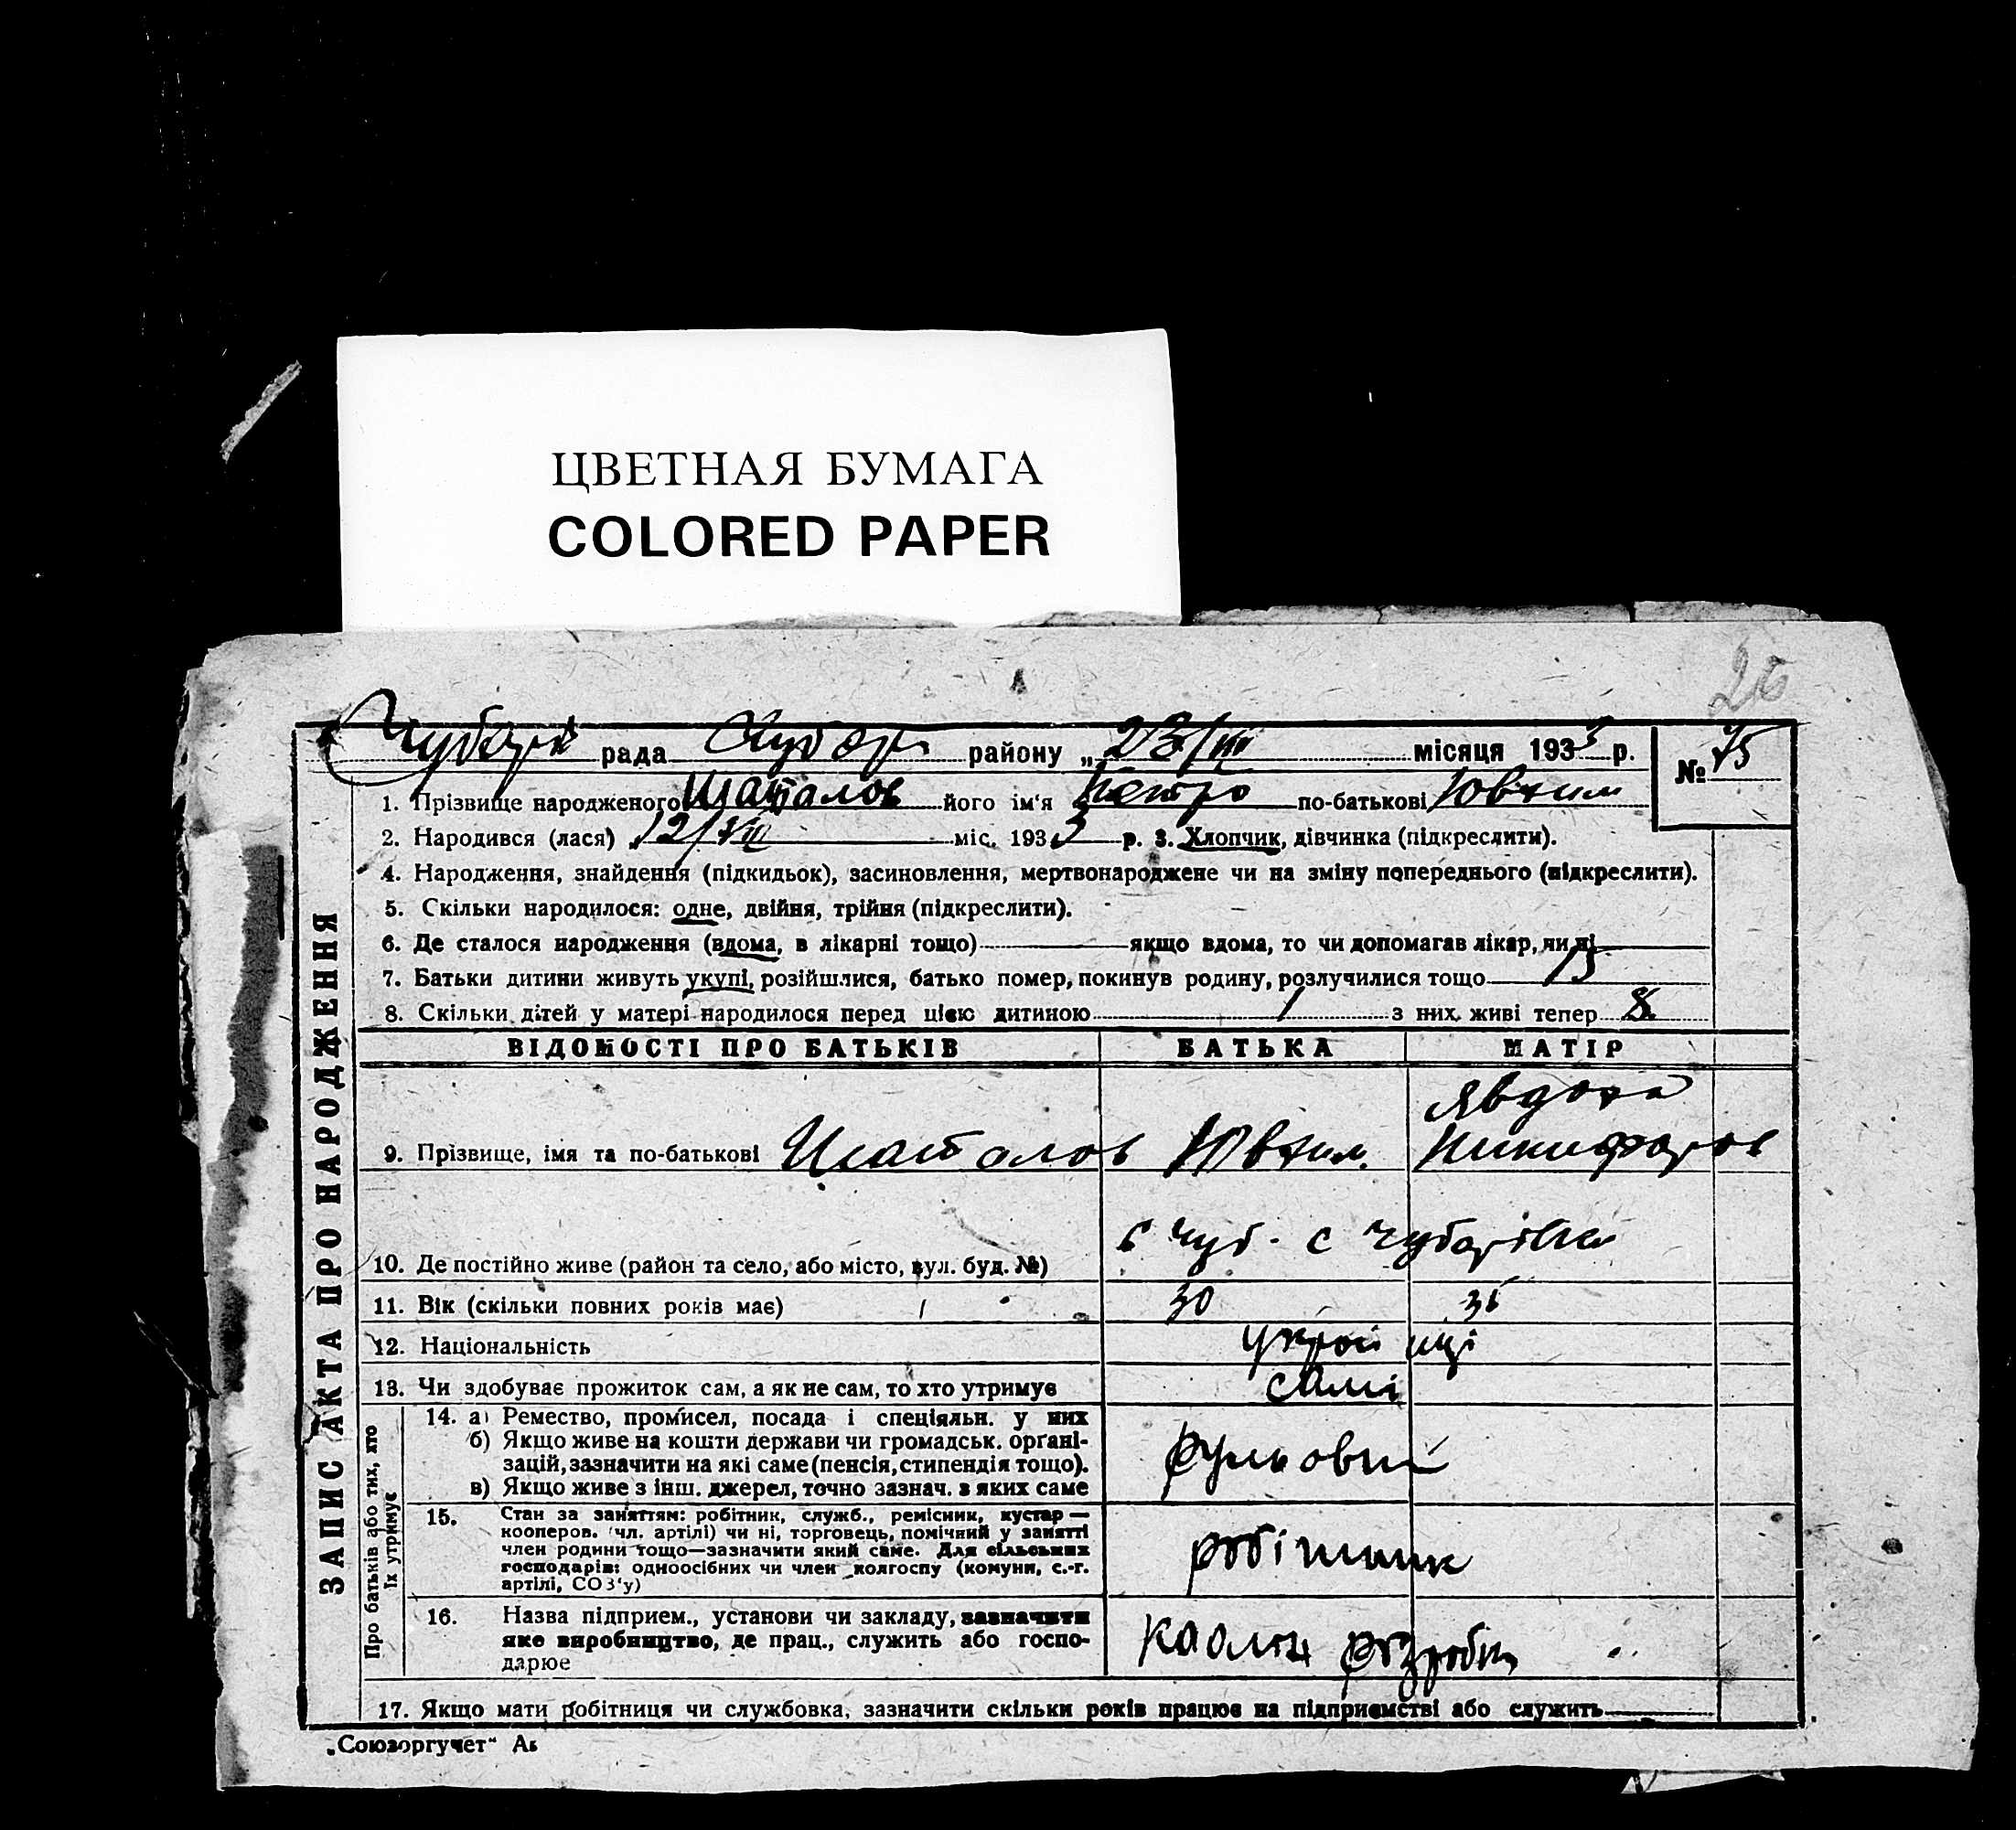 ЦВЕТНАЯ БУМАГА
COLORED PAPER
26
Чубарів рада Чубар району „23/VIII місяця 1933 р. № 75
1. Прізвище народженого Шаталов його ім'я Петро по-батькові Ювхим
2. Народився (лася) 12/VIII міс. 1933 р. 3. Хлопчик, дівчинка (підкреслити).
4. Народження, знайдення (підкидьок), засиновлення, мертвонароджене чи на зміну попереднього (підкреслити).
5. Скільки народилося: одне, двійня, трійня (підкреслити).
6. Де сталося народження (вдома, в лікарні тощо) якщо вдома, то чи допомагав лікар, чи ні
7. Батьки дитини живуть укупі, розійшлися, батько помер, покинув родину, розлучилися тощо
8. Скільки дітей у матері народилося перед цією дитиною 1 з них живі тепер
ЗАПИС АКТА ПРО НАРОДЖЕННЯ
ВІДОМОСТІ ПРО БАТЬКІВ БАТЬКА МАТІР
Явдоха
9. Прізвище, імя та по-батькові Шаталов Ювхим. Никифоров
10. Де постійно живе (район та село, або місто, вул. буд. №) Чуб. с Чубарівка
11. Вік (скільки повних років має) 30
12. Національність україн ці
13. Чи здобуває прожиток сам, а як не сам, то хто утримує самі
Про батьків або тих, хто
їх утримує
14. а) Ремество, промисел, посада і спеціяльн. у них
б) Якщо живе на кошти держави чи громадськ. органі-
зацій, зазначити на які саме (пенсія, стипендія тощо).
в) Якщо живе з інш. джерел, точно зазнач. з яких саме
рульовий
15. Стан за заняттям: робітник, служб., ремісник, кустар—
кооперов. (чл. артілі) чи ні, торговець, помічний у занятті
член родини тощо—зазначити який саме. Для сільських
господарів: одноосібних чи член колгоспу (комуни, с.-г.
артілі, СОЗ'у)
робітник
16. Назва підприєм., установи чи закладу, зазначити
яке виробництво, де прац., служить або госпо-
дарює
каолін розробки
17. Якщо мати робітниця чи службовка, зазначити скільки років працює на підприємстві або служить
„Союзоргучет“